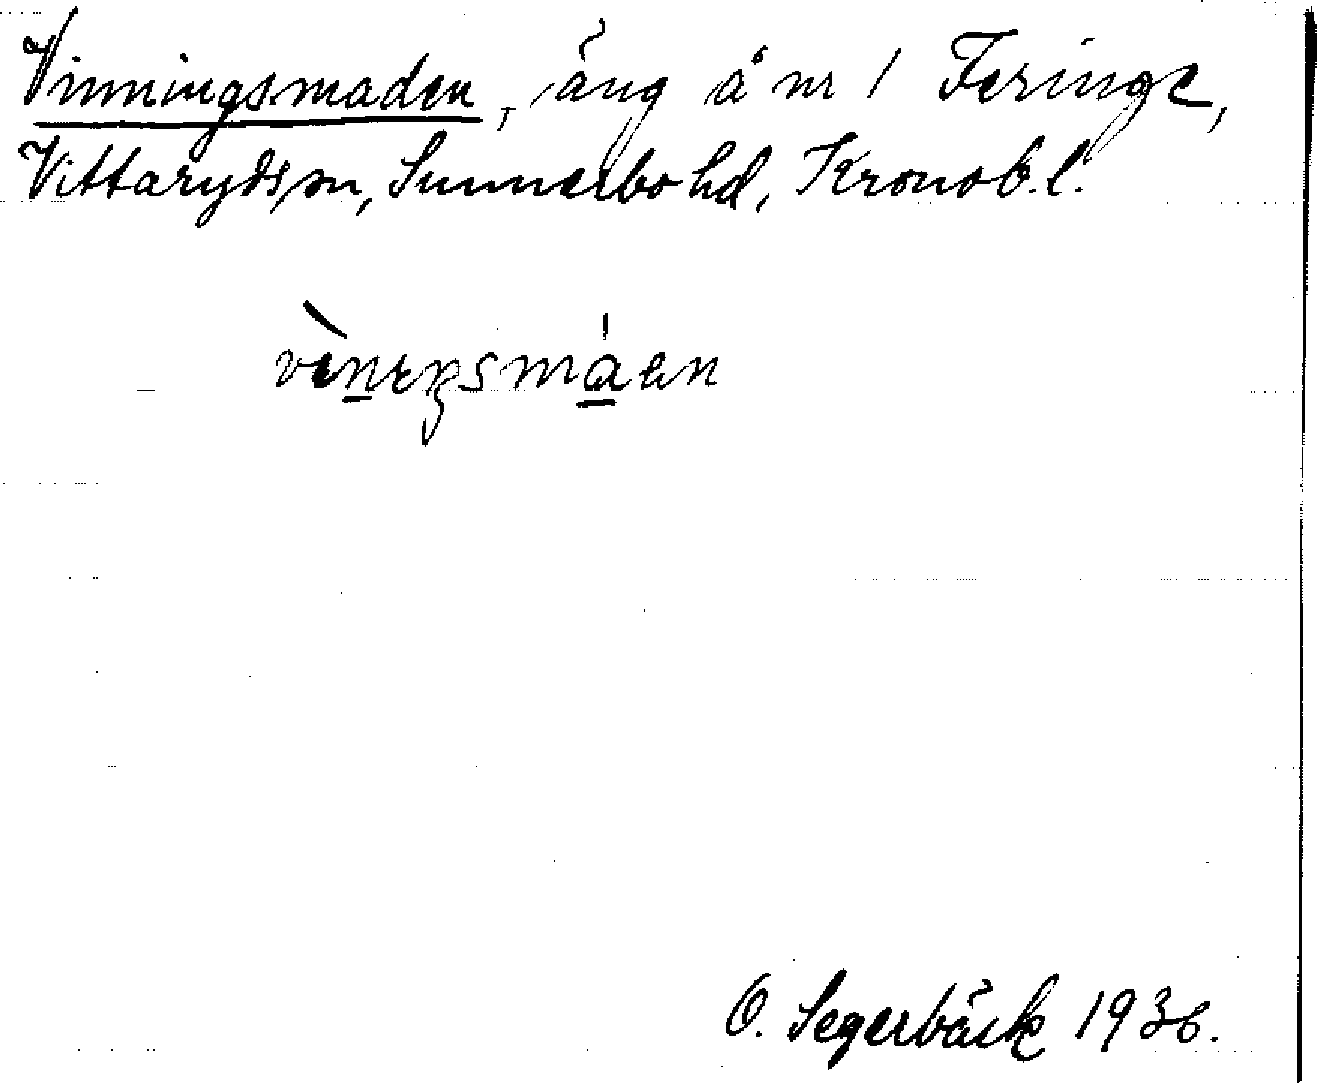 Vinningsmaden, äng å nr 1 Feringe,
Vittaryds sn, Sunnerbo hd, Kronob. l.
vìnıŋsmáen
O. Segerbäck 1936.